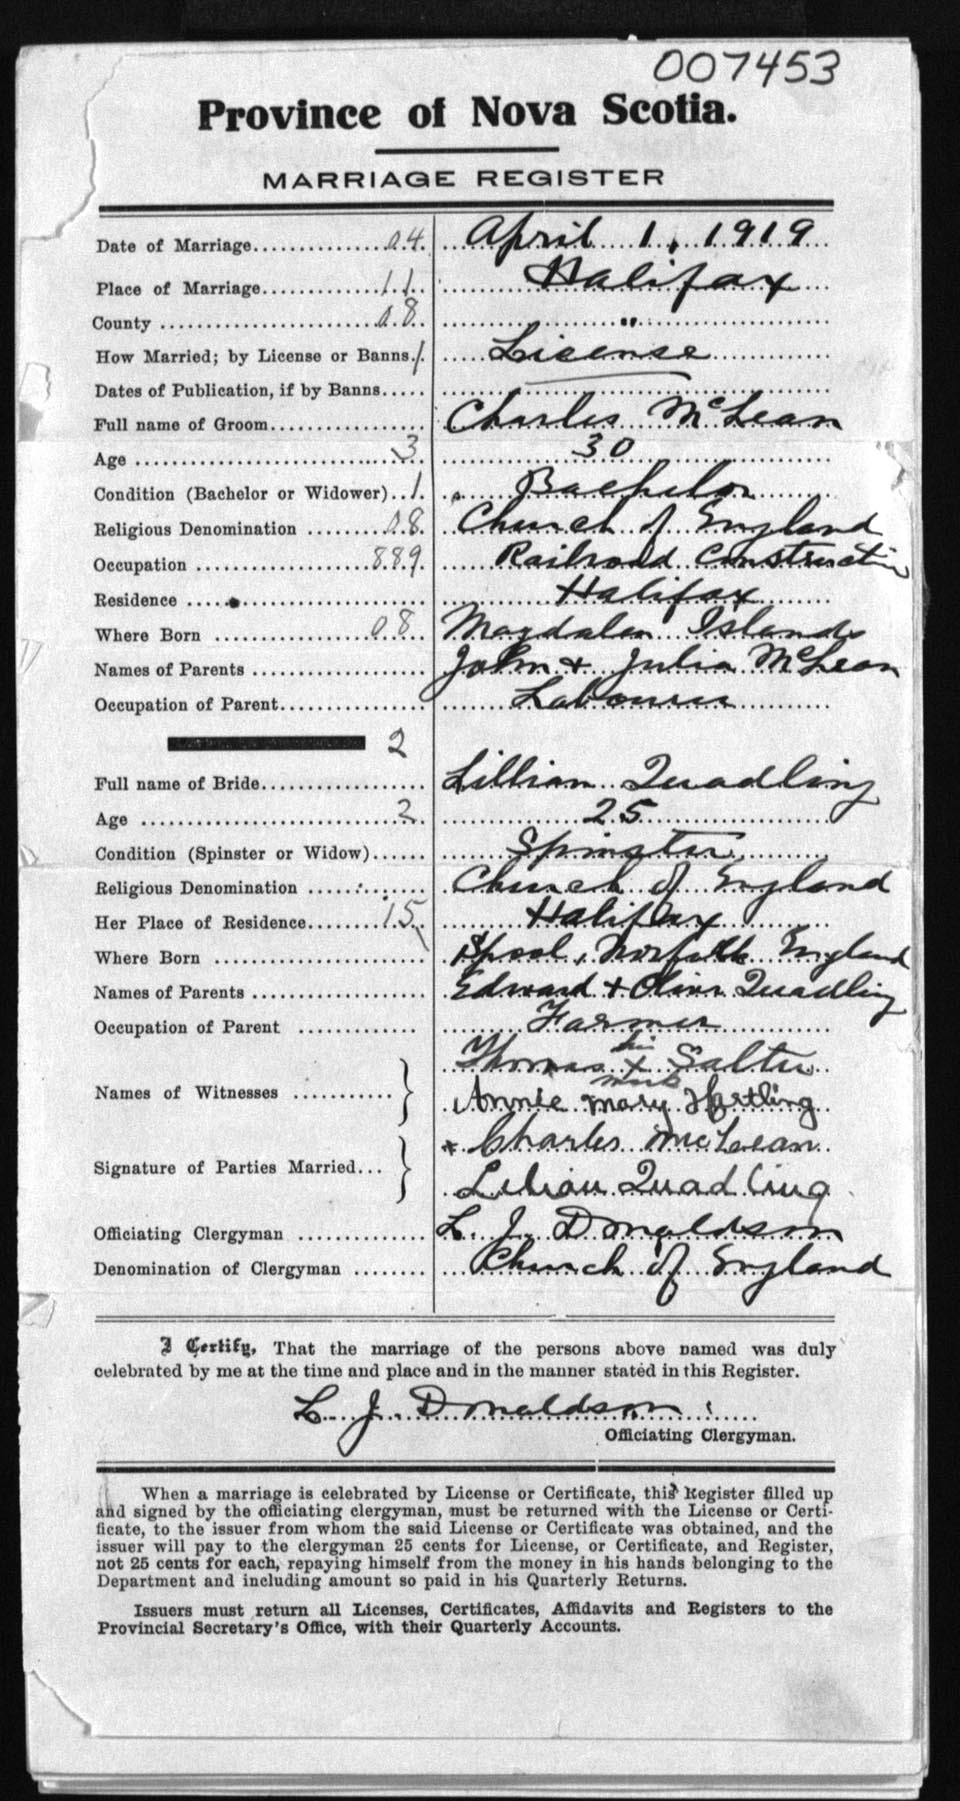 007453
Province of Nova Scotia.
MARRIAGE REGISTER
Date of Marriage 04 April 1, 1919
Place of Marriage 11 Halifax
County 08 "
How Married; by License or Banns. 1 License
Dates of Publication, if by Banns
Full name of Groom Charles McLean
Age 3 30
Condition (Bachelor or Widower) 1 Bachelor
Religious Denomination 08 Church of England
Occupation 889 Railroad Construction
Residence Halifax
Where Born 08 Magdalen Islands
Names of Parents John + Julia McLean
Occupation of Parent Labourer
2
Full name of Bride Lillian Quadling
Age 2 25
Condition (Spinster or Widow) Spinster
Religious Denomination Church of England
Her Place of Residence 15 Halifax
Where Born Norfolk England
Names of Parents Edward + Oliver Quadling
Occupation of Parent Farmer
Names of Witnesses Thomas his x mark Salter
Annie Mary Hartling
Signature of Parties Married... Charles McLean
Lilian Quadling
Officiating Clergyman L. J. Donaldson
Denomination of Clergyman Church of England
I Certify, That the marriage of the persons above named was duly
celebrated by me at the time and place and in the manner stated in this Register.
L. J. Donaldson
Officiating Clergyman.
When a marriage is celebrated by License or Certificate, this Register filled up
and signed by the officiating clergyman, must be returned with the License or Certi-
ficate, to the issuer from whom the said License or Certificate was obtained, and the
issuer will pay to the clergyman 25 cents for License, or Certificate, and Register,
not 25 cents for each, repaying himself from the money in his hands belonging to the
Department and including amount so paid in his Quarterly Returns.
Issuers must return all Licenses, Certificates, Affidavits and Registers to the
Provincial Secretary's Office, with their Quarterly Accounts.